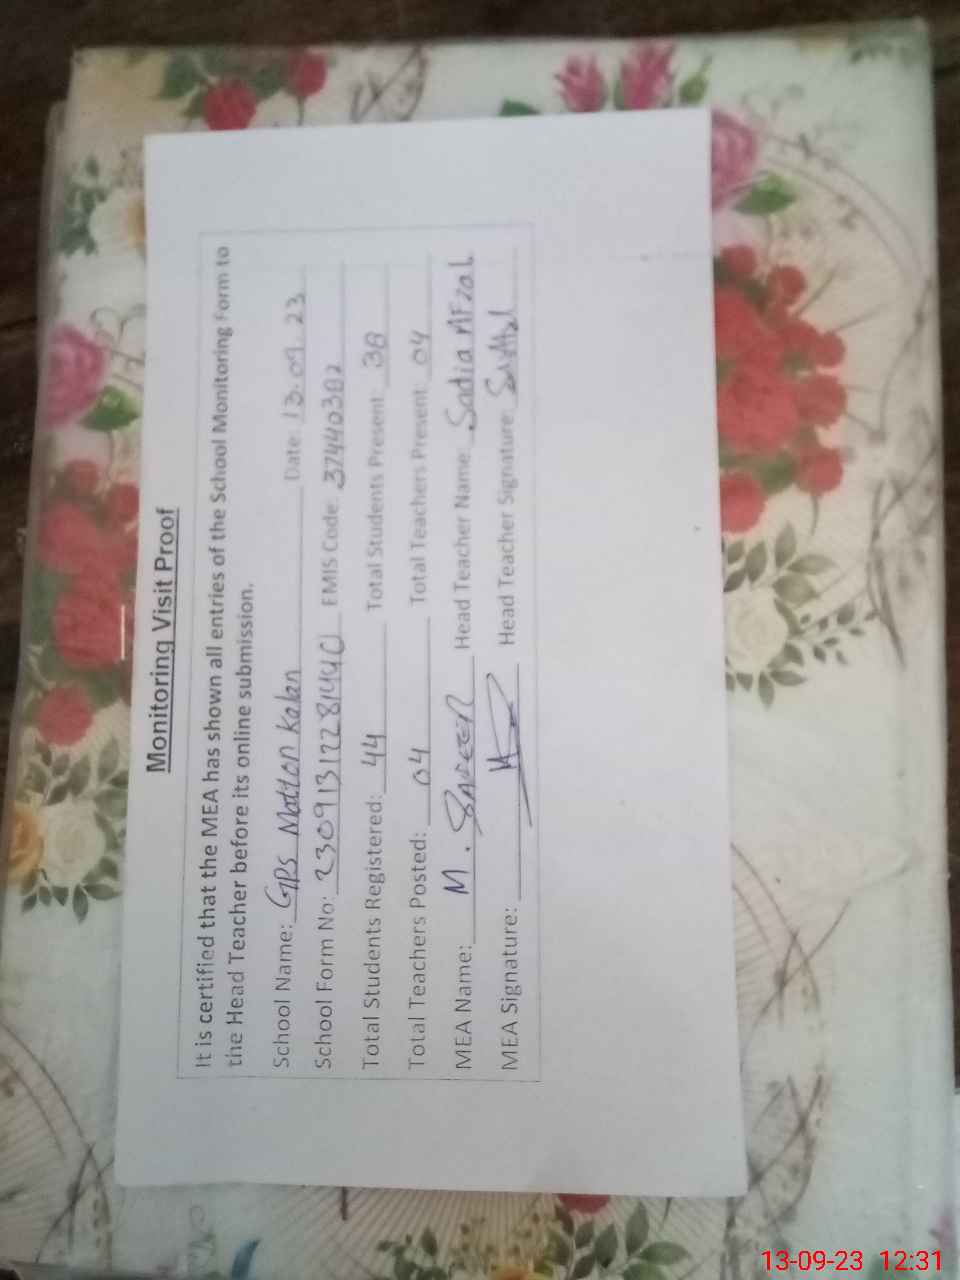 Monitoring Visit Proof
It is certified that the MEA has shown all entries of the School Monitoring Form to
the Head Teacher before its online submission.
School Name: GPS Mattan Kalan Date: 13.09.23
School Form No: EMIS Code: 37440382
Total Students Registered: 44 Total Students Present: 38
Total Teachers Posted: 04 Total Teachers Present: 04
MEA Name: M. Head Teacher Name: Sadia Afzal
MEA Signature: Head Teacher Signature:
13-09-23 12:31